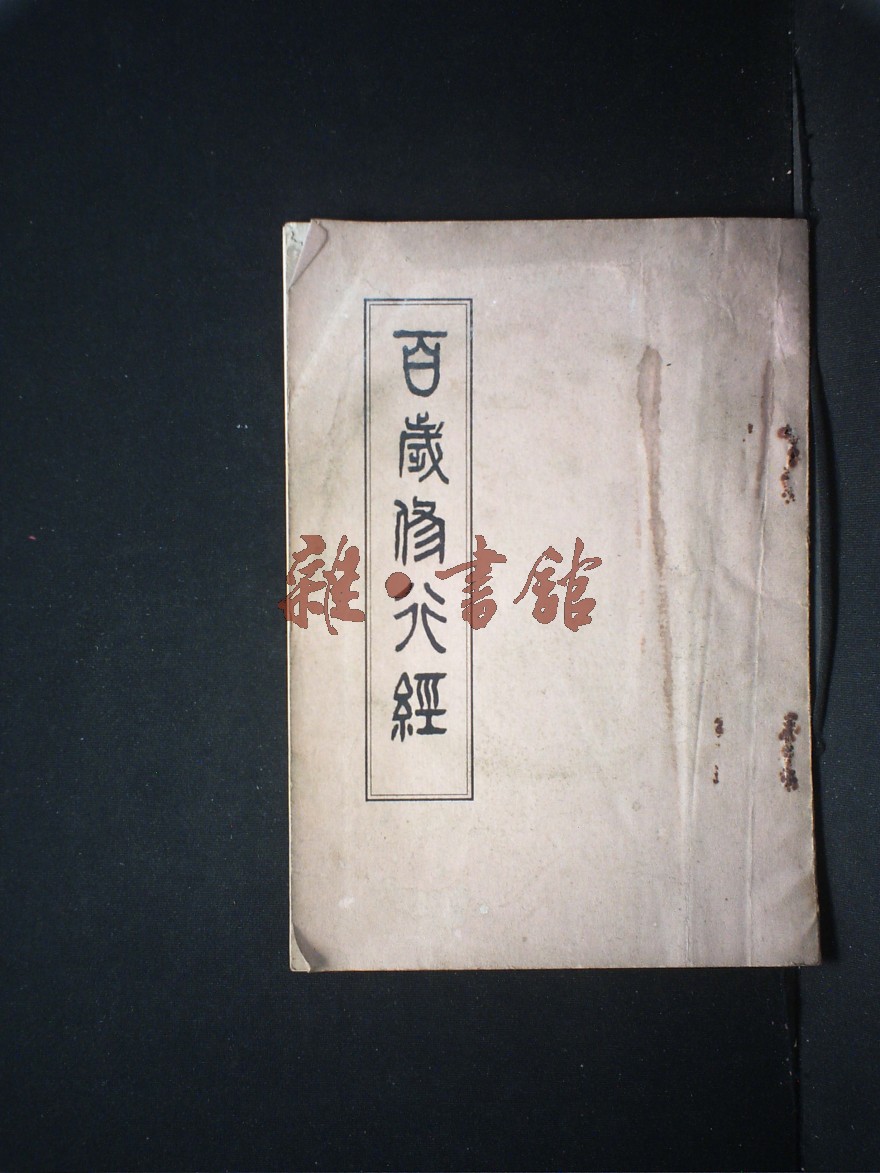 百歲修行經
雜·書館